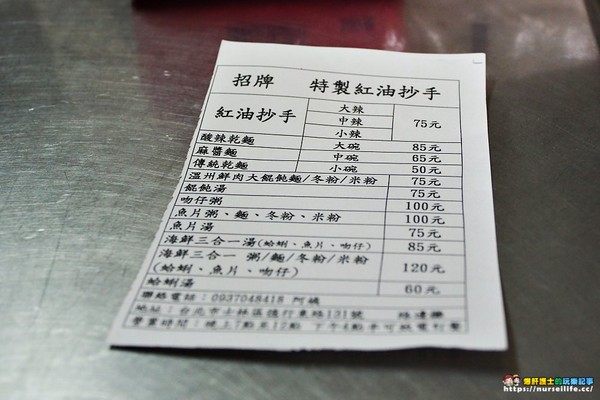 招牌 特製紅油抄手
紅油抄手 大辣 中辣 小辣 75元
酸辣乾麵 大碗 85元
麻醬麵 中碗 65元
傳統乾麵 小碗 50元
溫州鮮肉大餛飩麵/冬粉/米粉 75元
餛飩湯 75元
吻仔粥 100元
魚片粥、麵、冬粉、米粉 100元
魚片湯 75元
海鮮三合一湯(蛤蜊、魚片、吻仔) 85元
海鮮三合一 粥/麵/冬粉/米粉
(蛤蜊、魚片、吻仔) 120元
蛤蜊湯 60元
聯絡電話:0937048418 阿
地址:台北市士林區德行東路131號 路邊攤
營業時間:晚上7點至12點 下午4點半可
爆肝護士的玩樂記事
https://nurseilife.cc/